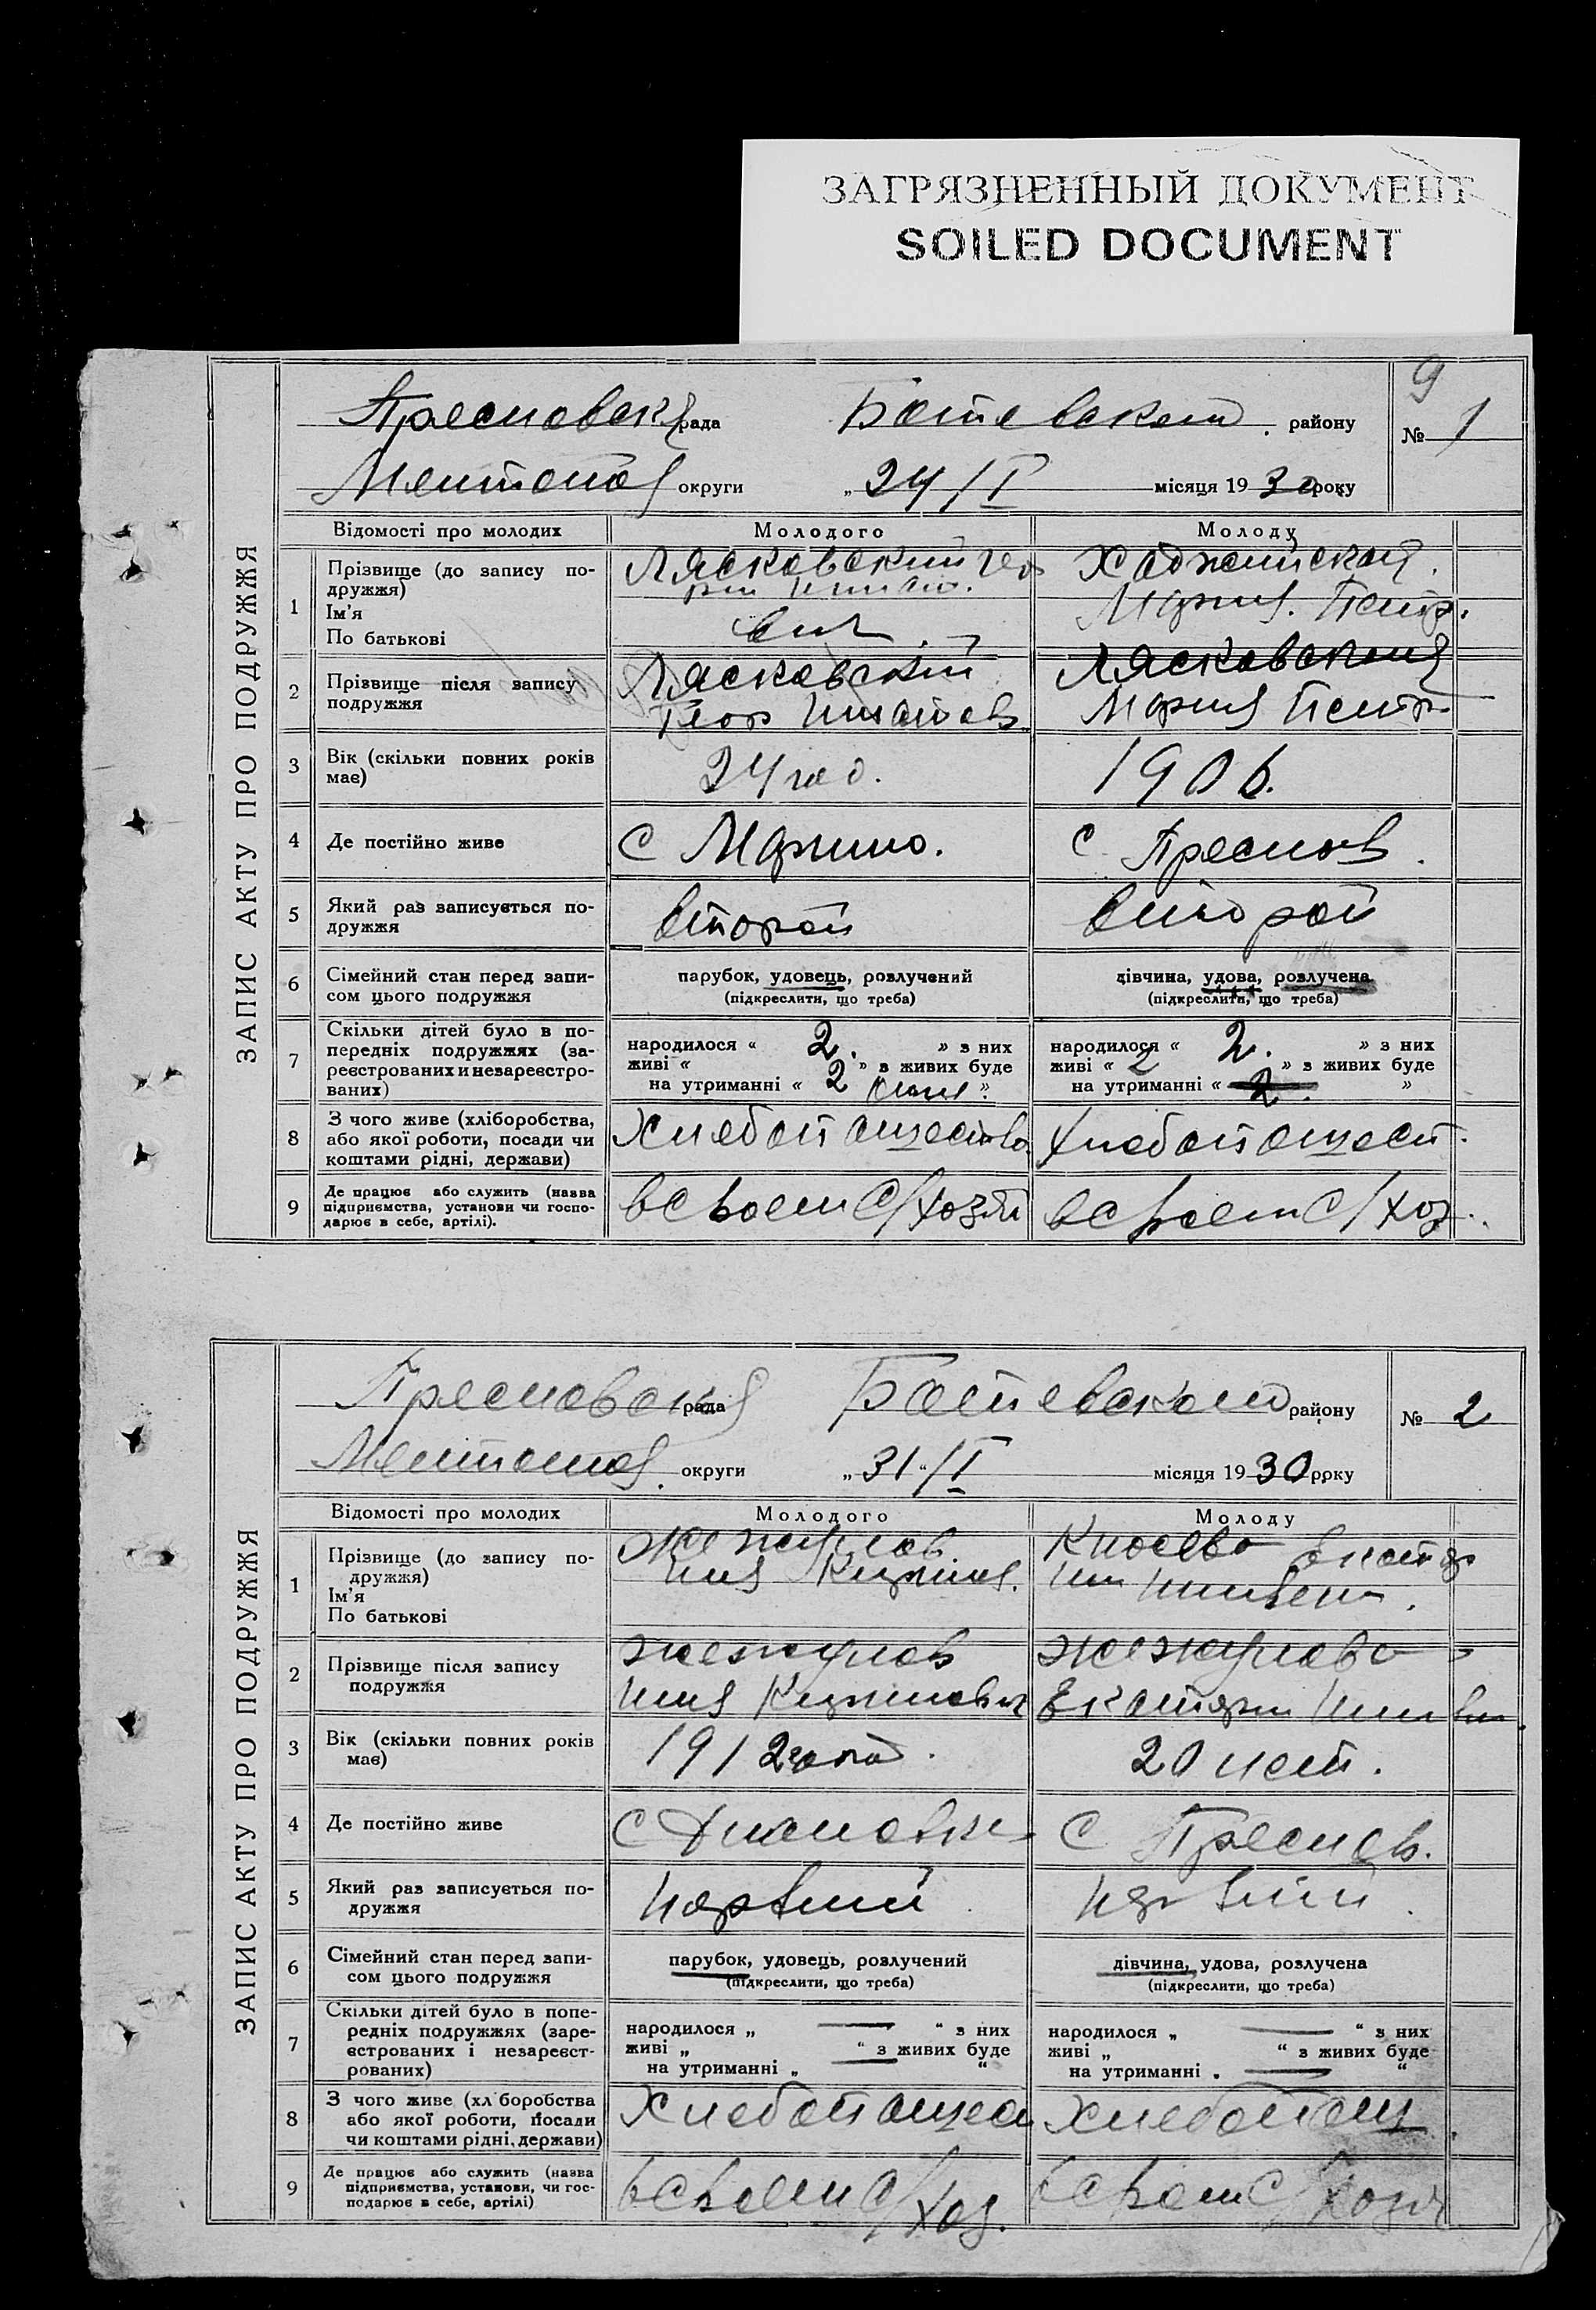 ЗАГРЯЗНЕННЫЙ ДОКУМЕНТ
SOILED DOCUMENT
9
рада Ботевском району № 1
округи „ 24/I місяця 1930 року
ЗАПИС АКТУ ПРО ПОДРУЖЖЯ
Відомості про молодих Молодого Молоду
1 Прізвище (до запису по-
дружжя)
Ім'я
По батькові
Лясковский Гео
вич
Мария. Петр.
2 Прізвище після запису
подружжя
Лясковский
Геор
Лясковская
Мария Петр
3 Вік (скільки повних років
має)
24 год.
1906.
4 Де постійно живе
С Марино.
С Преслов.
5 Який раз записується по-
дружжя
второй
второй
6 Сімейний стан перед запи-
сом цього подружжя
парубок, удовець, розлучений
(підкреслити, що треба)
дівчина, удова, розлучена
(підкреслити, що треба)
7 Скільки дітей було в по-
передніх подружжях (за-
реєстрованих и незареєстро-
ваних)
народилося « 2. » з них
живі « » з живих буде
на утриманні « 2 »
народилося « 2. » з них
живі « 2 » з живих буде
на утриманні « 2. »
8 З чого живе (хліборобства,
або якої роботи, посади чи
коштами рідні, держави)
Хлебопашества
Хлебопашест.
9 Де працює або служить (назва
підприємства, установи чи госпо-
дарює в себе, артілі).
в своем с/хозяй
в своем с/хоз.
Пресловская рада Ботевского району № 2
округи „ 31 “/I місяця 1930 року
ЗАПИС АКТУ ПРО ПОДРУЖЖЯ
Відомості про молодих Молодого Молоду
1 Прізвище (до запису по-
дружжя)
Ім'я
По батькові
Жежулов
Илья
2 Прізвище після запису
подружжя
Жежулов
Илья
Жежулова
Екатерин
3 Вік (скільки повних років
має)
1912 года.
20 лет.
4 Де постійно живе
С
С Преслов.
5 Який раз записується по-
дружжя
первый
первый
6 Сімейний стан перед запи-
сом цього подружжя
парубок, удовець, розлучений
(підкреслити, що треба)
дівчина, удова, розлучена
(підкреслити, що треба)
7 Скільки дітей було в попе-
редніх подружжях (заре-
єстрованих і незареєст-
рованих)
народилося „ — “ з них
живі „ “ з живих буде
на утриманні „ — “
народилося „ — “ з них
живі „ “ з живих буде
на утриманні . — “
8 З чого живе (хл боробства
або якої роботи, посади
чи коштами рідні, держави)
Хлебопашес
хлебопаш
9 Де працює або служить (назва
підприємства, установи, чи гос-
подарює в себе, артілі)
в своем с/хоз.
в своем с/хозяй